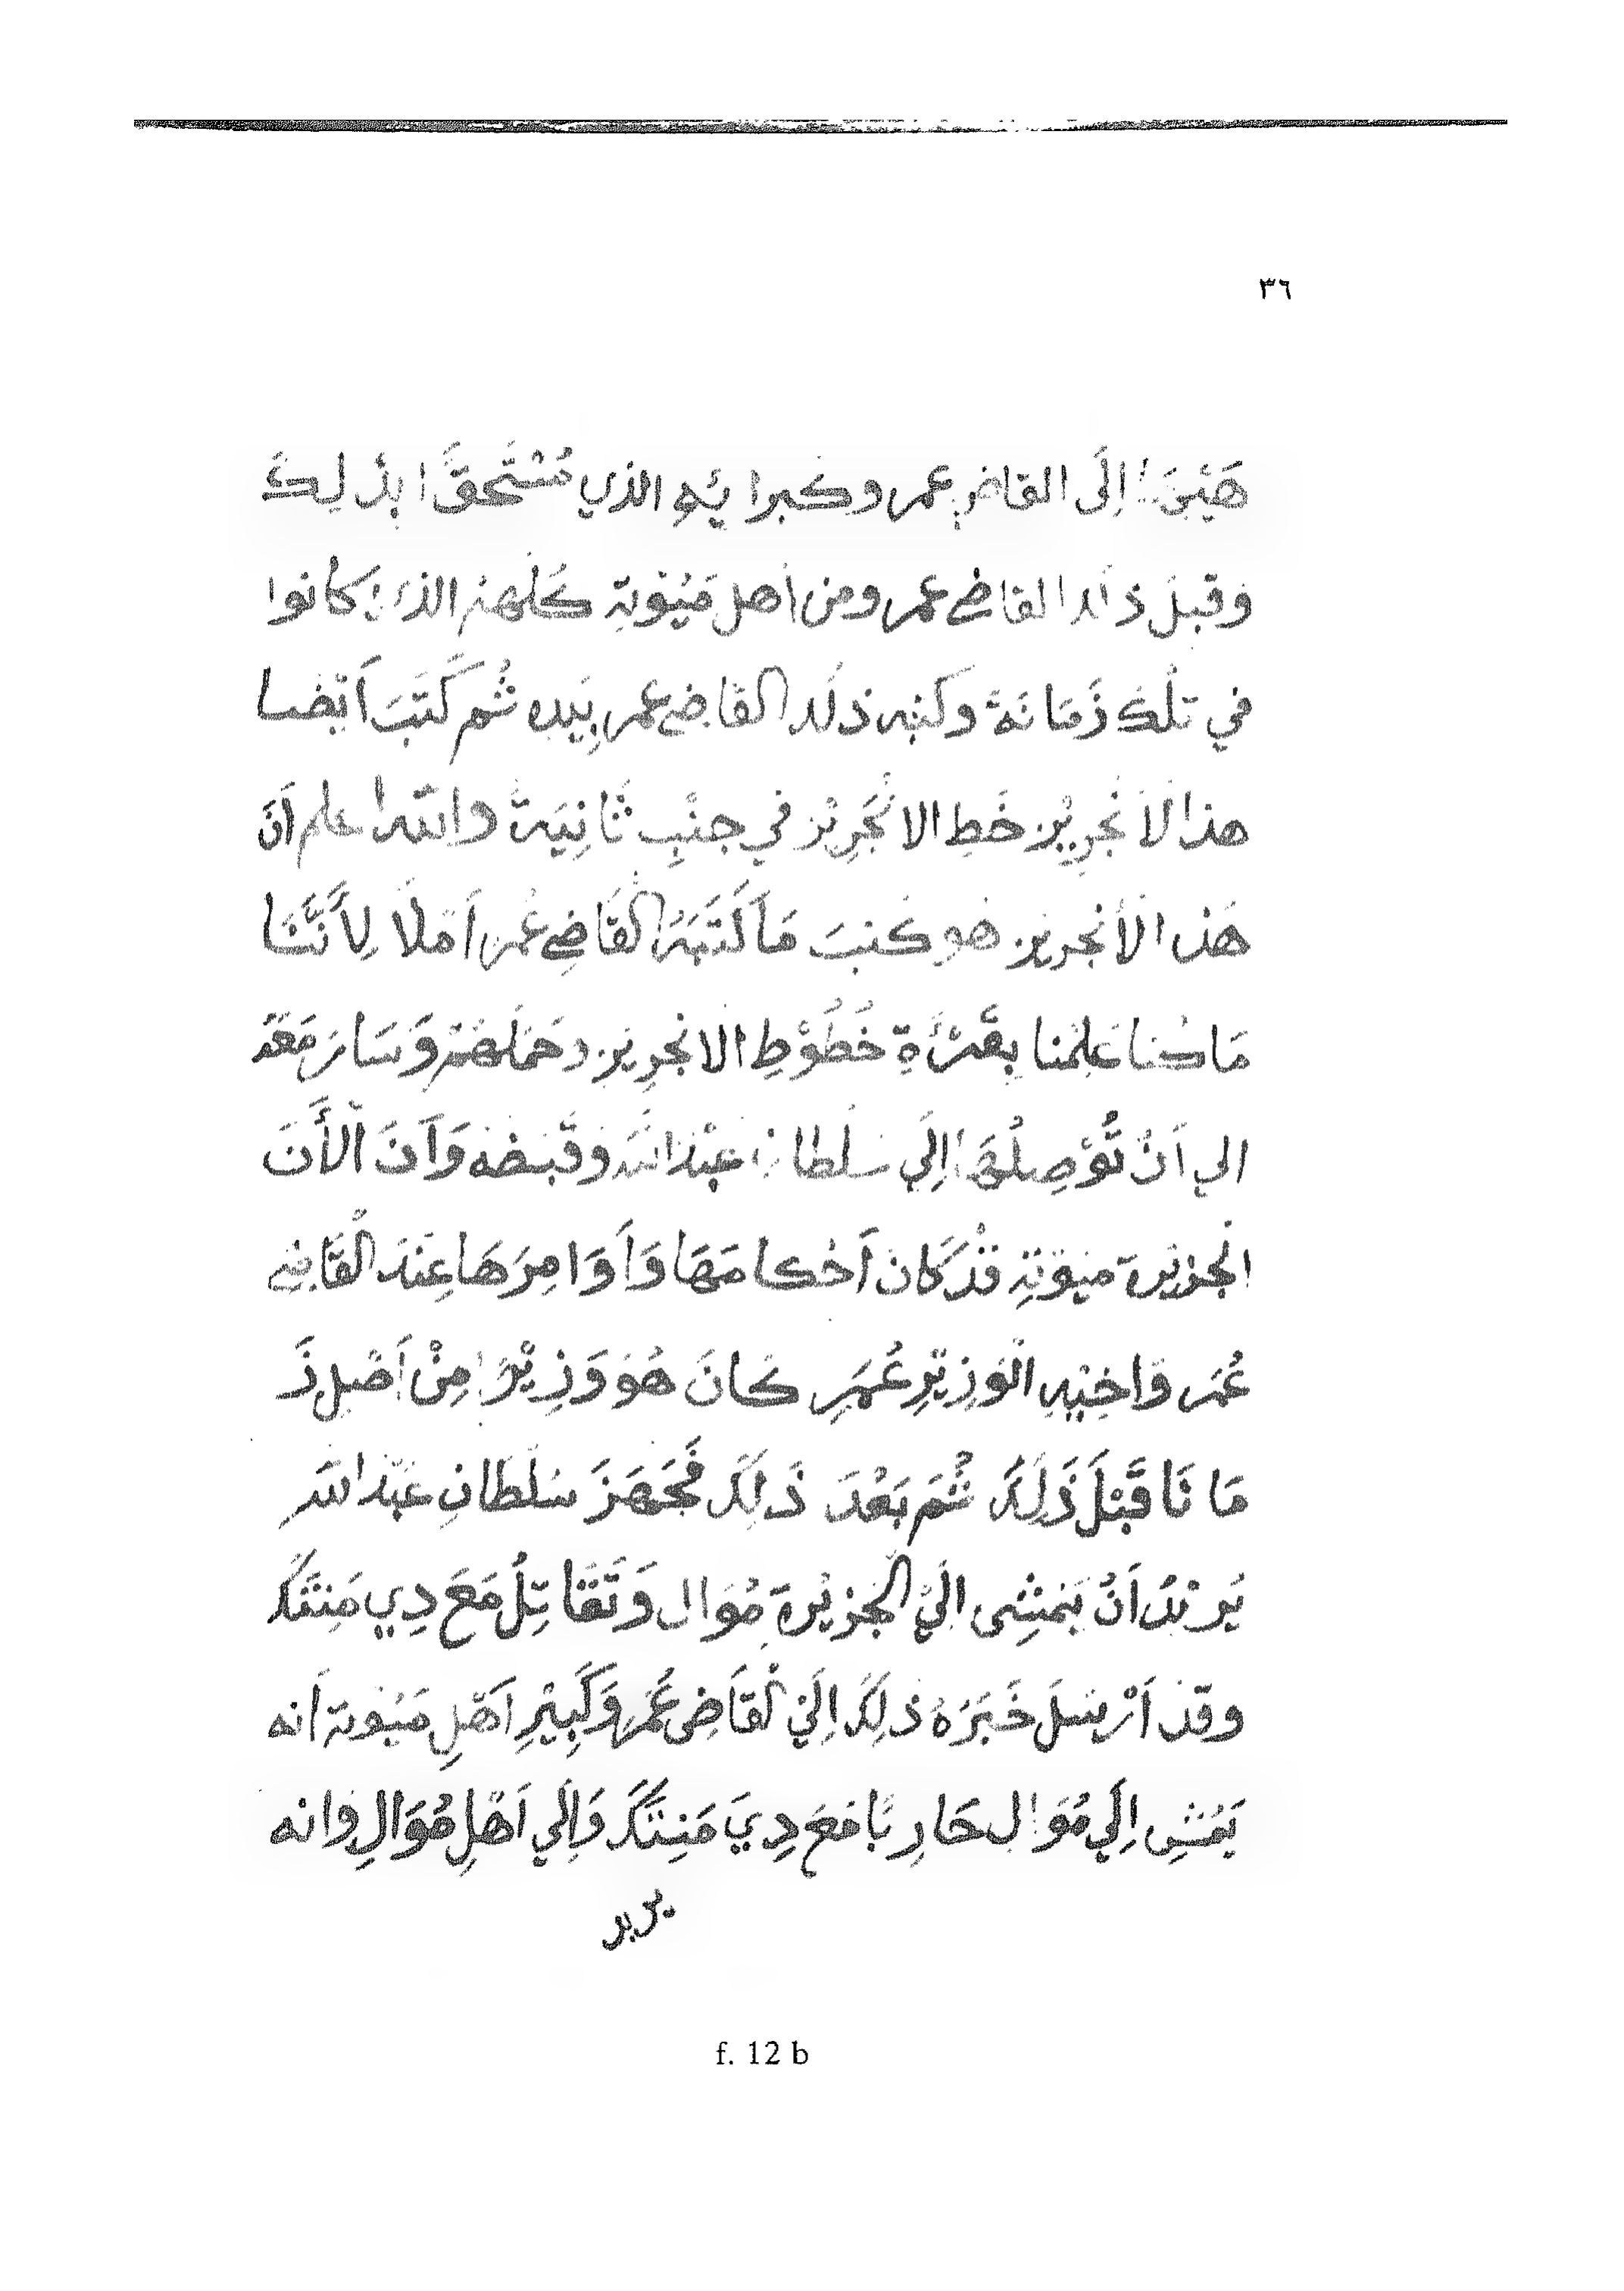 ٣٦
إِلَى القاضي عمر وكبرايه الذي مُسْتَحَقًّا بذلِكَ
وَقَبلَ ذلك القاضي عمر ومن أهل مَيُوْتِة كُلهم الذي كانوا
في تلْكَ زَمَانَة وكتبه ذلك القاضي عمر بِيَده ثُم كَتَبَ اَيْضا
هذا الاَنْجرِيْز خَطِ الانْجَرِيْز في جنْبِ ثَانِيَة والله اعلم اَنَّ
هَذا الأنجريز هو كتبَ مَا كَتَبَهُ القَاضِي عُمر اَمْلًا لِأَنَّنَا
مَا كنا عَلِمْنا بِقَرْءَةِ خُطُوْطِ الانجرِيز وحَمَلَهُمْ وَسَارَ مَعَهُ
الي اَنْ تُوْصِلُهَا إِلَي سُلْطَان عَبْد الله وَقَبَضَه وَاَنَ الْأَنَ
الجزيْرة مَيُوْتِةِ قَدْ كَانَ اَحْكامَهَا وَاَوَامِرَهَا عِنْدَ الْقَاضي
عُمَر وَاخِيْهِ الْوَزِيْرِ عُمَرِ كَانَ هُوَ وَزِيْرًا مِنْ اَصْلِ ذَ
مَا نَا قَبْلَ ذَلِكَ ثُمَ بَعْدَ ذَلِكَ فَجَهَزَ سُلْطَانِ عَبْد الله
يُرِيْدُ اَنْ يَمْشِى الَيْ الْجَزِيْرة مُوَال وَتَقَاتِلُ مَعَ دِي مَنِتَك
وقَدْ اَرْسَلَ خَبَرُهُ ذَلِكَ اِلَيْ لْقَاضِى عُمَرِ وَكَبِيْرِ اَهْلِ مَيُوتة اَنه
يَمْشِ اِلَي مُوَال حَارِبًا مَعَ دِيَ مَنِتَكَ وَاِلَي اَهْلِ مُوَالِ وَانه
يريد
f. 12 b